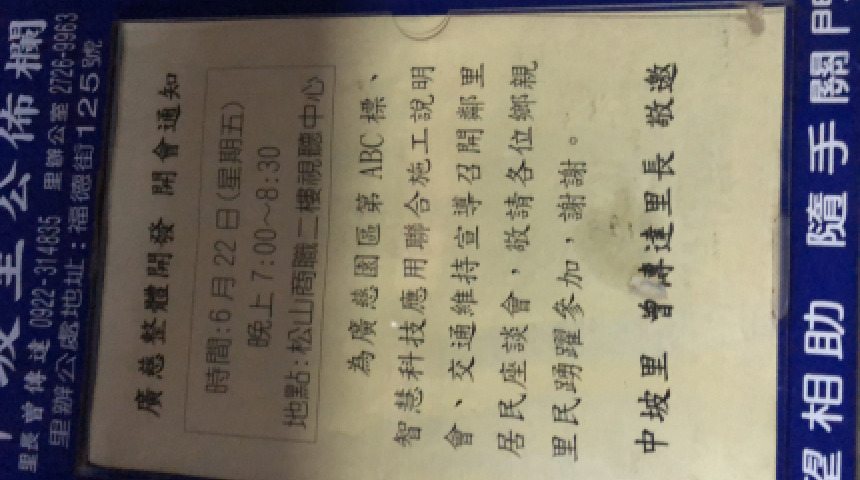 坡里公佈欄
里長 曾傳達 0922-314835 里辦公室 2726-9963
里辦公處地址：福德街125號
廣慈整體開發 開會通知
時間：6月22日(星期五)
晚上7:00～8:30
地點：松山商職二樓視聽中心
為廣慈園區第ABC標、
智慧科技應用聯合施工說明
會、交通維持宣導召開鄰里
居民座談會，敬請各位鄉親
里民踴躍參加，謝謝。
中坡里 曾傳達里長 敬邀
望相助 隨手關門